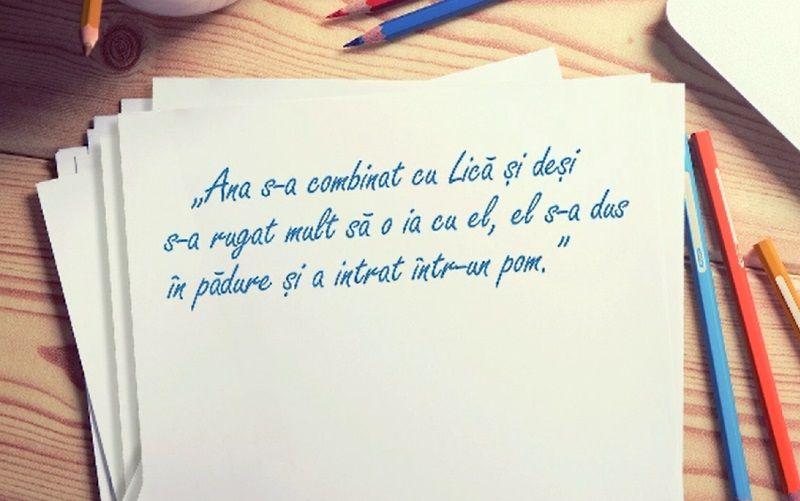 „Ana s-a combinat cu Lică și deși
s-a rugat mult să o ia cu el, el s-a dus
în pădure și a intrat într-un pom.”